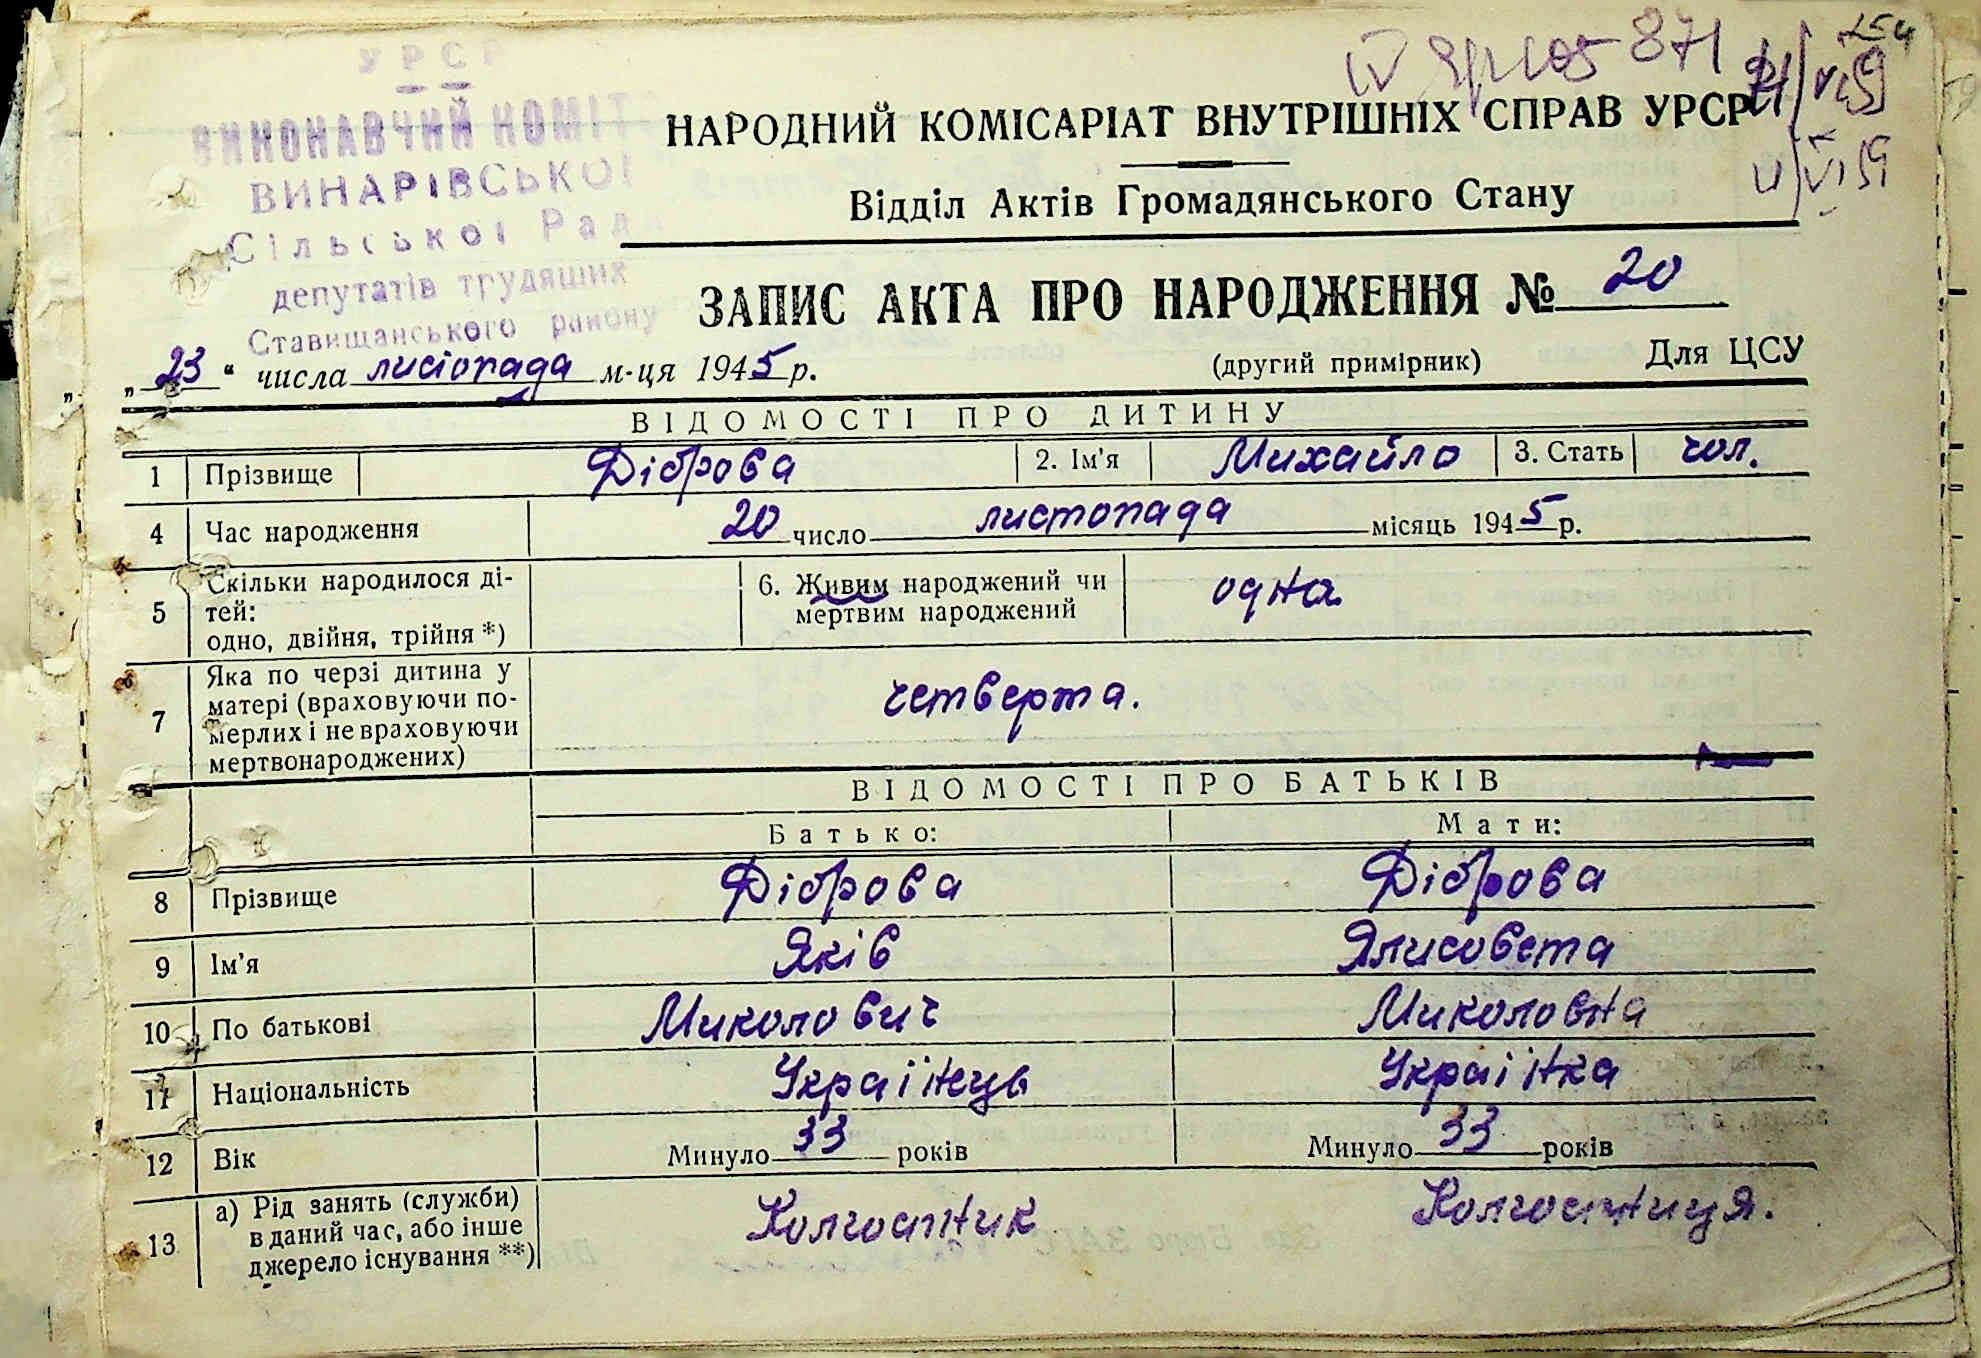 УРСР
ВИКОНАВЧИЙ КОМІТ
ВИНАРІВСЬКОЇ
Сільської Рад
депутатів трудящих
Ставищанського району
254
871
НАРОДНИЙ КОМІСАРІАТ ВНУТРІШНІХ СПРАВ УРСР
Відділ Актів Громадянського Стану
ЗАПИС АКТА ПРО НАРОДЖЕННЯ № 20
„23“ числа листопада м-ця 1945 р. (другий примірник) Для ЦСУ
ВІДОМОСТІ ПРО ДИТИНУ
1 Прізвище Діброва 2. Ім'я Михайло 3. Стать чол.
4 Час народження 20 число листопада місяць 1945 р.
5 Скільки народилося ді-
тей:
одно, двійня, трійня *)
6. Живим народжений чи
мертвим народжений
одна
7 Яка по черзі дитина у
матері (враховуючи по-
мерлих і не враховуючи
мертвонароджених)
четверта.
ВІДОМОСТІ ПРО БАТЬКІВ
Батько: Мати:
8 Прізвище Діброва Діброва
9 Ім'я Яків Ялисовета
10 По батькові Миколович Миколовна
11 Національність Українець Українка
12 Вік Минуло 33 років Минуло 33 років
13 а) Рід занять (служби)
в даний час, або інше
джерело існування **)
Колгостник Колгостниця.